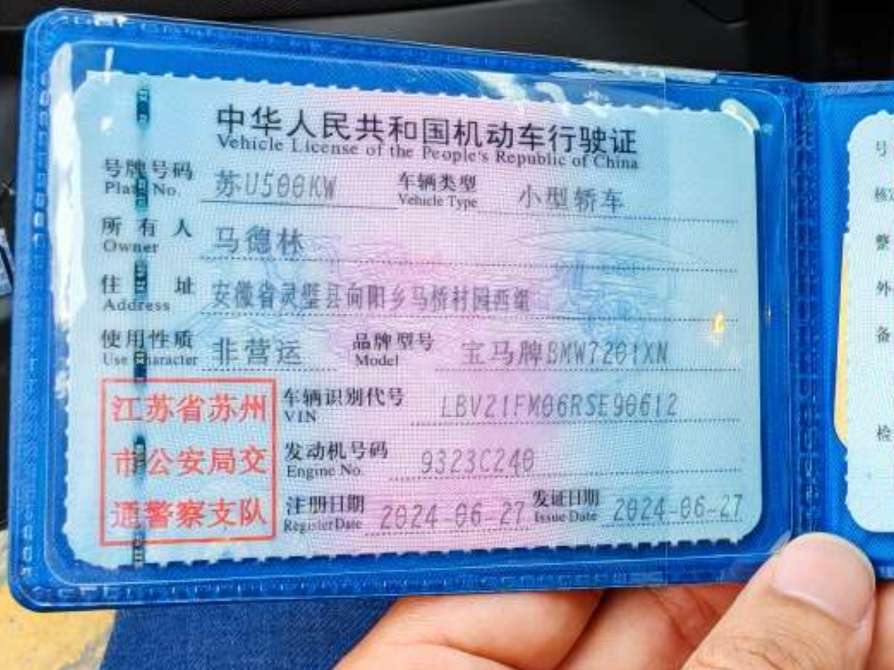 中华人民共和国机动车行驶证
Vehicle License of the People's Republic of China
号牌号码 苏U500KW 车辆类型 小型轿车
Plate No. Vehicle Type
所有人 马德林
Owner
住址 安徽省灵璧县向阳乡马桥村园西组
Address
使用性质 非营运 品牌型号 宝马牌BMW7201XN
Use Character Model
江苏省苏州
市公安局交
通警察支队
车辆识别代号 LBV21FM06RSE90612
VIN
发动机号码 9323C240
Engine No.
注册日期 2024-06-27 发证日期 2024-06-27
Register Date Issue Date
号
核
整
外
备
检